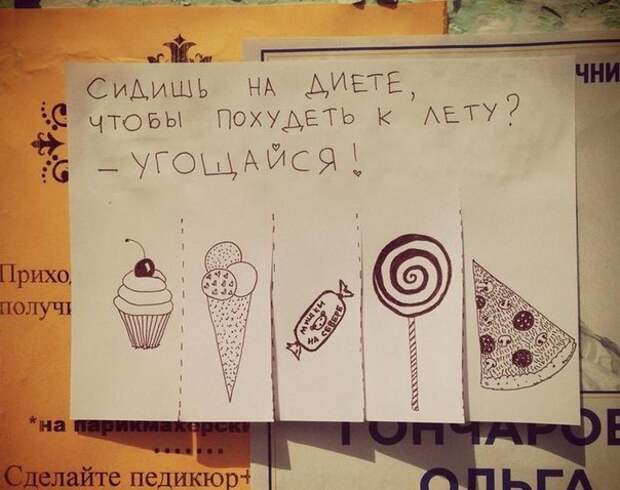 ЧНИ
СИДИШЬ НА ДИЕТЕ,
ЧТОБЫ ПОХУДЕТЬ К ЛЕТУ?
– УГОЩАЙСЯ!
Прихо
получи
МИШКИ
НА СЕВЕРЕ
*на парикмахерск
ГОНЧАРОВ
Сделайте педикюр+
ОЛЬГА